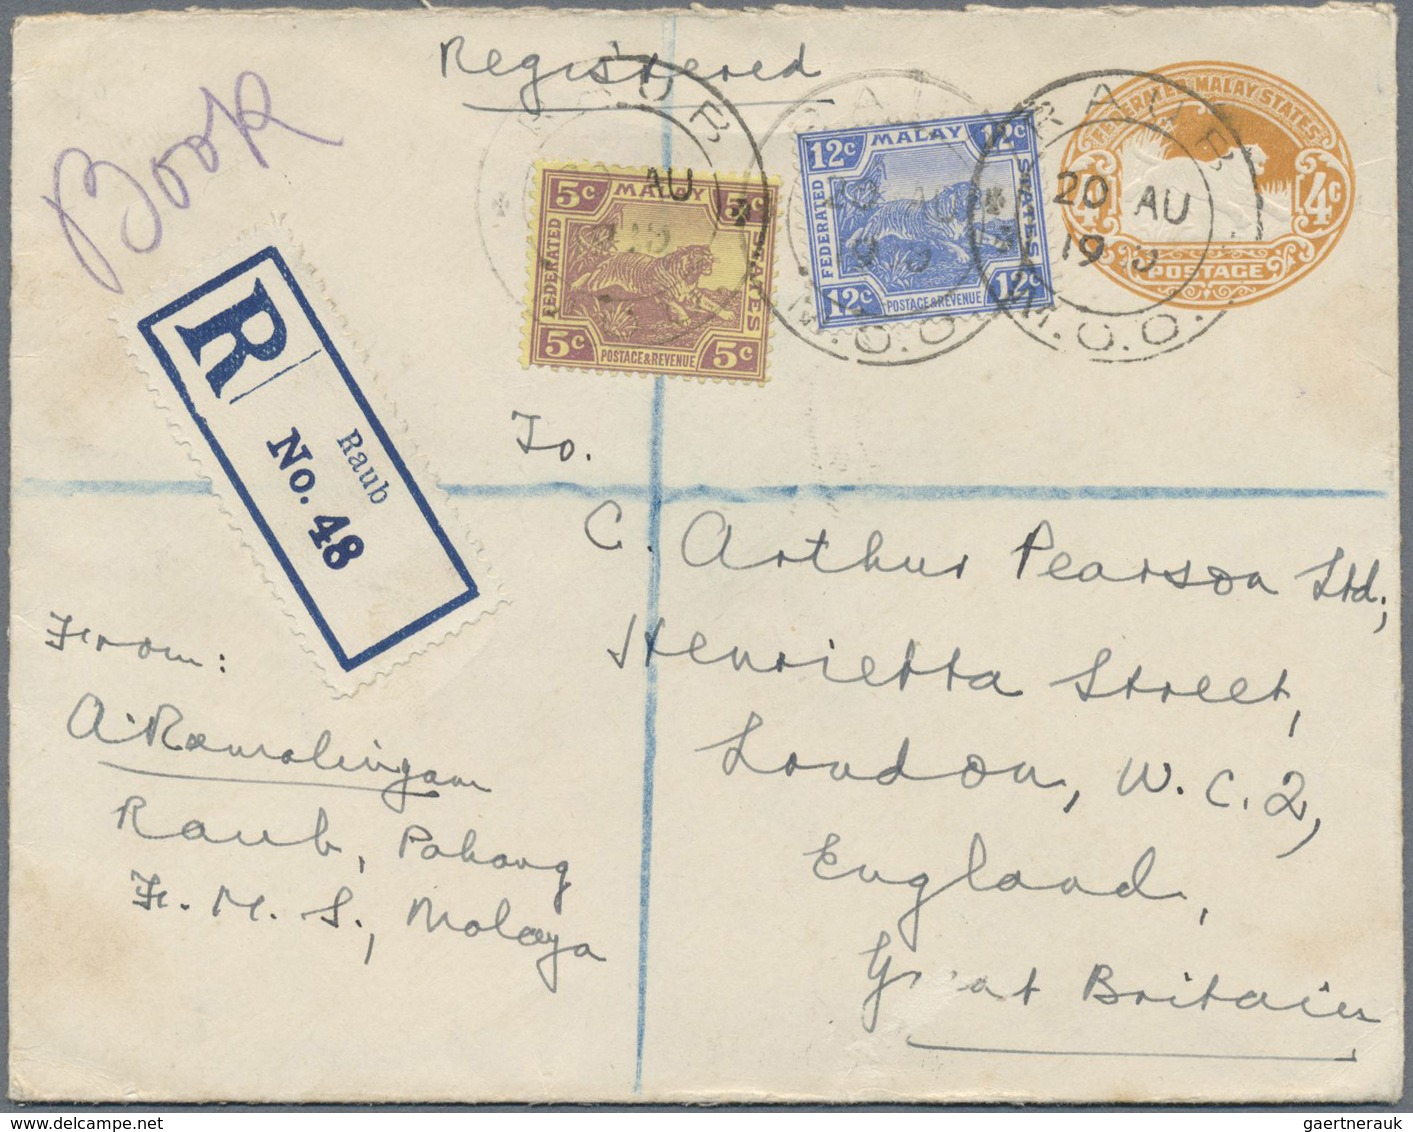 Registered
Book
FEDERATED MALAY STATES
4c 4c
POSTAGE
5c MALAY 5c
FEDERATED
STATES
5c POSTAGE & REVENUE 5c
12c MALAY 12c
FEDERATED
STATES
12c POSTAGE & REVENUE 12c
RAUB
AU
RAUB
20 AU
19
M.O.O.
RAUB
20 AU
19
M.O.O.
R
Raub
No. 48
To.
C. Arthur Pearson Ltd;
Henrietta Street,
London, W.C.2,
England,
Great Britain
From:
A. Ramalingam
Raub, Pahang
F. M. S., Malaya
gaertnerauk